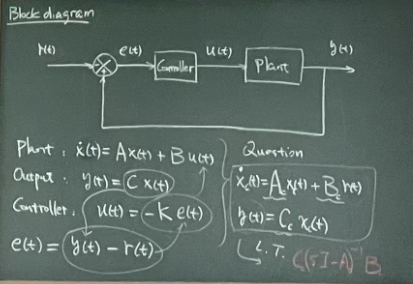 Block diagram
r(t) e(t) u(t) y(t)
Controller Plant
Plant : ẋ(t) = Ax(t) + Bu(t)
Output : y(t) = C x(t)
Controller : u(t) = -K e(t)
e(t) = y(t) - r(t)
Question
ẋ(t) = A_c x(t) + B_c r(t)
y(t) = C_c x(t)
L.T. C(sI-A)^-1 B